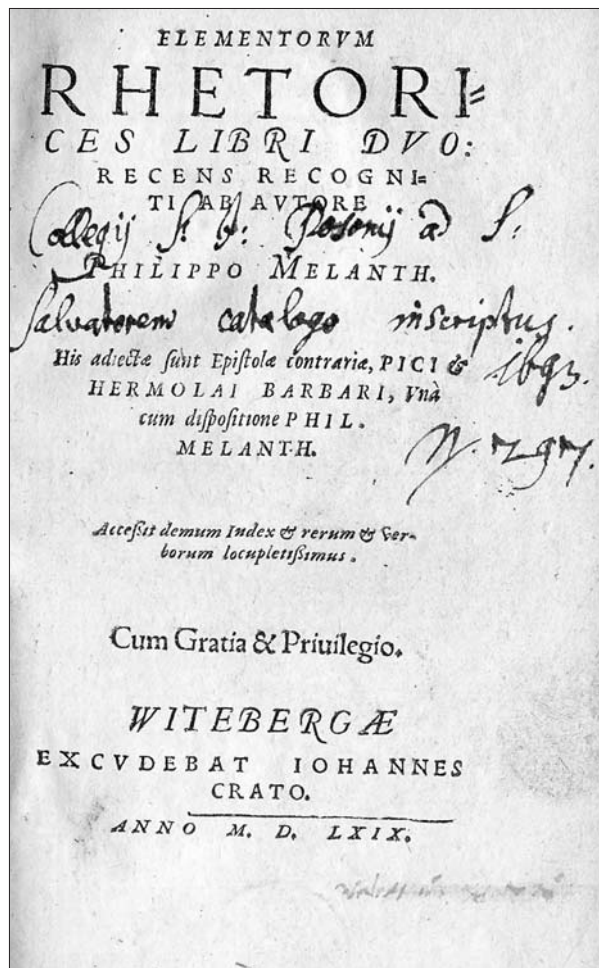 ELEMENTORVM
RHETORI=
CES LIBRI DVO:
RECENS RECOGNI=
TI AB AVTORE
Collegij S. J. Posonij ad S.
PHILIPPO MELANTH.
Salvatorem catalogo inscriptus.
1693.
His adiectæ sunt Epistolæ contrariæ, PICI &
HERMOLAI BARBARI, Vnà
cum dispositione PHIL.
MELANTH.
N. 297.
Accessit demum Index & rerum & Ver-
borum locupletissimus.
Cum Gratia & Priuilegio.
WITEBERGÆ
EXCVDEBAT IOHANNES
CRATO.
ANNO M. D. LXIX.